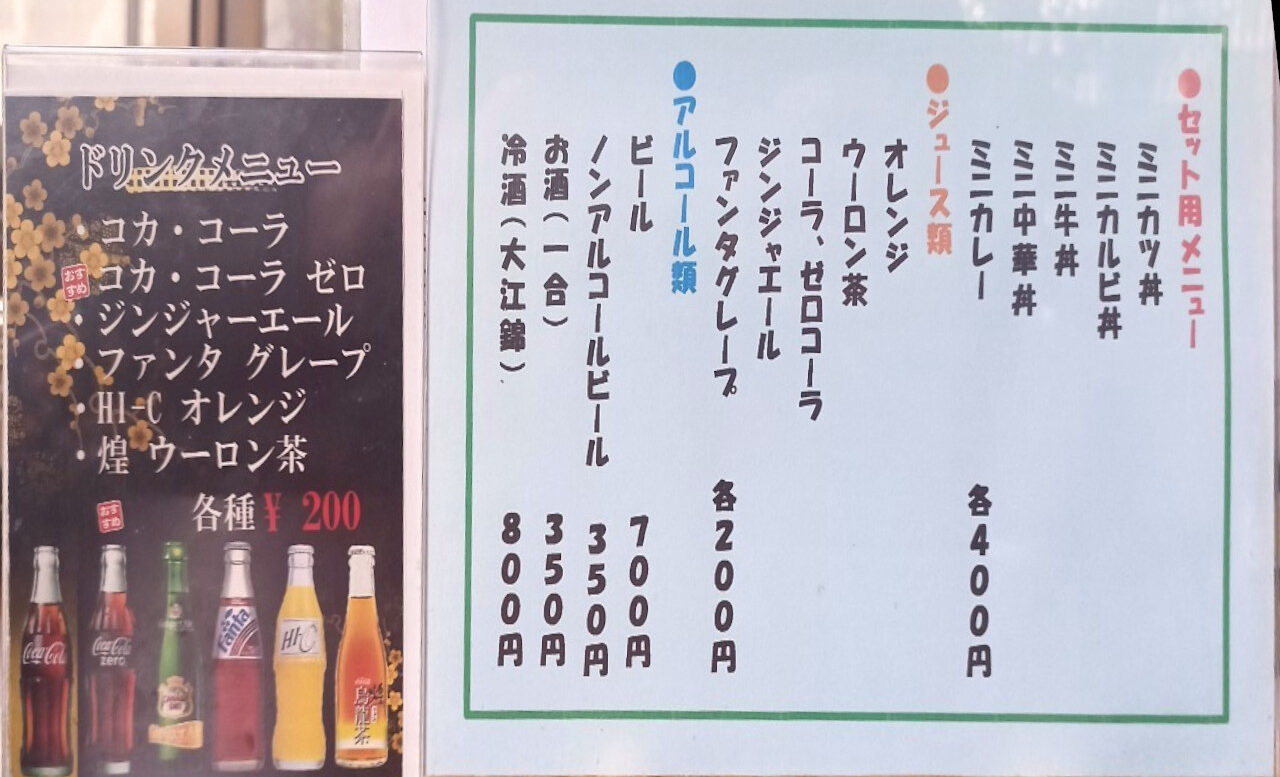 ドリンクメニュー
・コカ・コーラ
おすすめ
・コカ・コーラ ゼロ
・ジンジャーエール
・ファンタ グレープ
・HI-C オレンジ
・煌 ウーロン茶
おすすめ
各種¥ 200
Coca-Cola
Coca-Cola
zero
Fanta
Hi-C
烏龍茶
●セット用メニュー
ミニカツ丼
ミニカルビ丼
ミニ牛丼
ミニ中華丼
ミニカレー 各400円
●ジュース類
オレンジ
ウーロン茶
コーラ、ゼロコーラ
ジンジャエール
ファンタグレープ 各200円
●アルコール類
ビール 700円
ノンアルコールビール 350円
お酒(一合) 350円
冷酒(大江錦) 800円